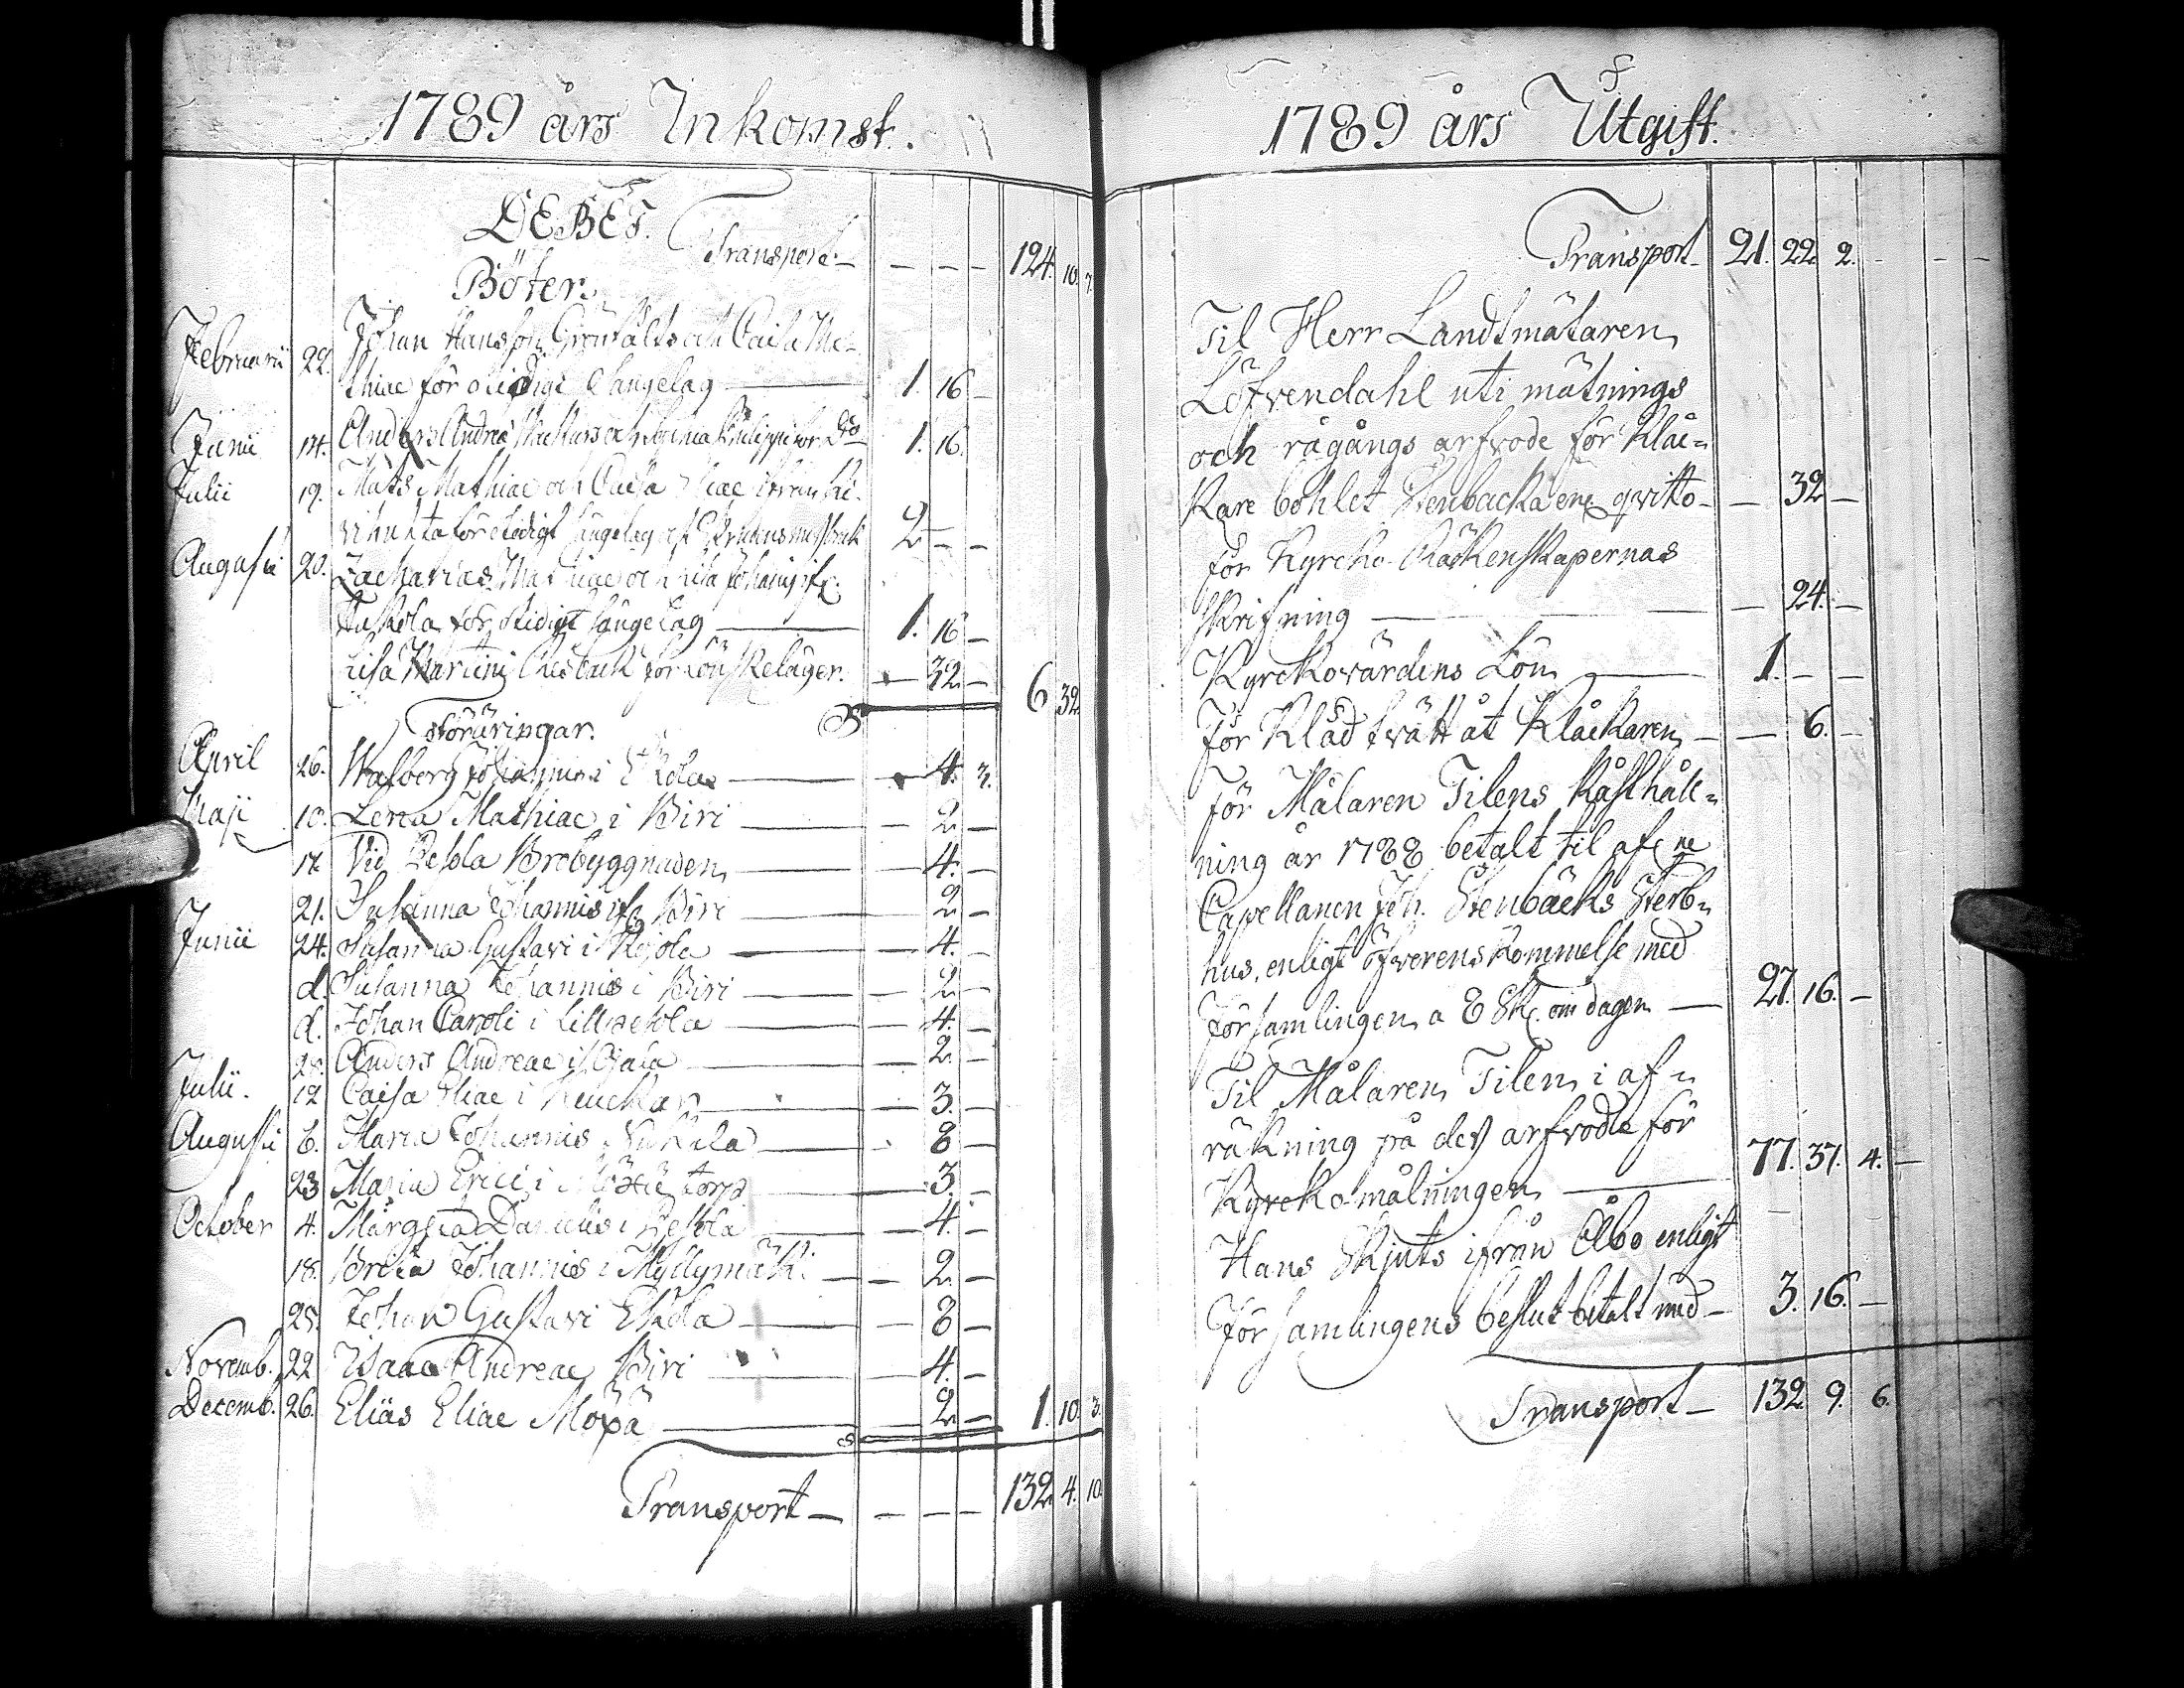 1789 års Inkomst.
DEBET.
Transport — — — — 124. 10. 7.
Böter.
Februarii 22. Johan Hansson och Caisa Ma-
thiae för otidigt Sängelag — 1. 16 —
Junii 14. Anders Andreae och för Do 1. 16.
Julii 19. Mats Mathiae och Caisa
för otidigt sängelag 2 — —
Augusti 20. Zacharias Mathiae och Lisa Johansdr
för otidigt sängelag — 1. 16 —
Lisa Martini för Lönskeläger. — 32 — 6 32
Föräringar.
April 26. Walborg Johannis i Ekola — 4. 3.
Maji 10. Lena Mathiae i Biri — 2 —
17. Vid Pesola Brobyggnaden — 4. —
21. Susanna Johannis ifr. Biri — 2 —
Junii 24. Susanna Gustavi i — 4. —
d. Susanna Johannis i Biri — 2 —
d. Johan Caroli i Lillpesola — 4. —
28. Anders Andreae i Ojala — 2. —
Julii. 12 Caisa Eliae i — 3. —
Augusti 6. Maria Johannis — 8 —
23 Maria Erici i torp — 3. —
October 4. Margeta Danielis i Pesola — 4. —
18. Breta Johannis i Myllymäki — 2 —
25. Johan Gustavi Ekola — 8 —
Novemb. 22 Isaac Andreae Biri — 4. —
Decemb. 26. Elias Eliae Möxä — 2 — 1. 10. 3.
Transport — — — — 132. 4. 10.
1789 års Utgift.
Transport — 21. 22. 2. — — —
Til Herr Landtmätaren
Löfvendahl uti mätnings
och rågångs arfvode för Klåc-
kare bohlet Stenbacka enl. qvitto — — 32 —
för Kyrcko-Räckenskapernas
skrifning — — 24. —
Kyrckovärdens Lön — 1. — —
För Kläd tvätt åt Klåckaren — — 6. —
För Målaren Tilens kåsthåll-
ning år 1788 betalt til afl. ne
Capellanen Joh. Stenbäcks Sterb-
hus, enligt öfverenskommelse med
Församlingen a 8 Sk. om dagen — 27. 16. —
Til Målaren Tilen i af-
räkning på des arfvode för
Kyrcko-målningen — 77. 37. 4. —
Hans Skjuts ifrån Åbo enligt
Församlingens beslut betalt med — 3. 16. —
Transport — 132. 9. 6.